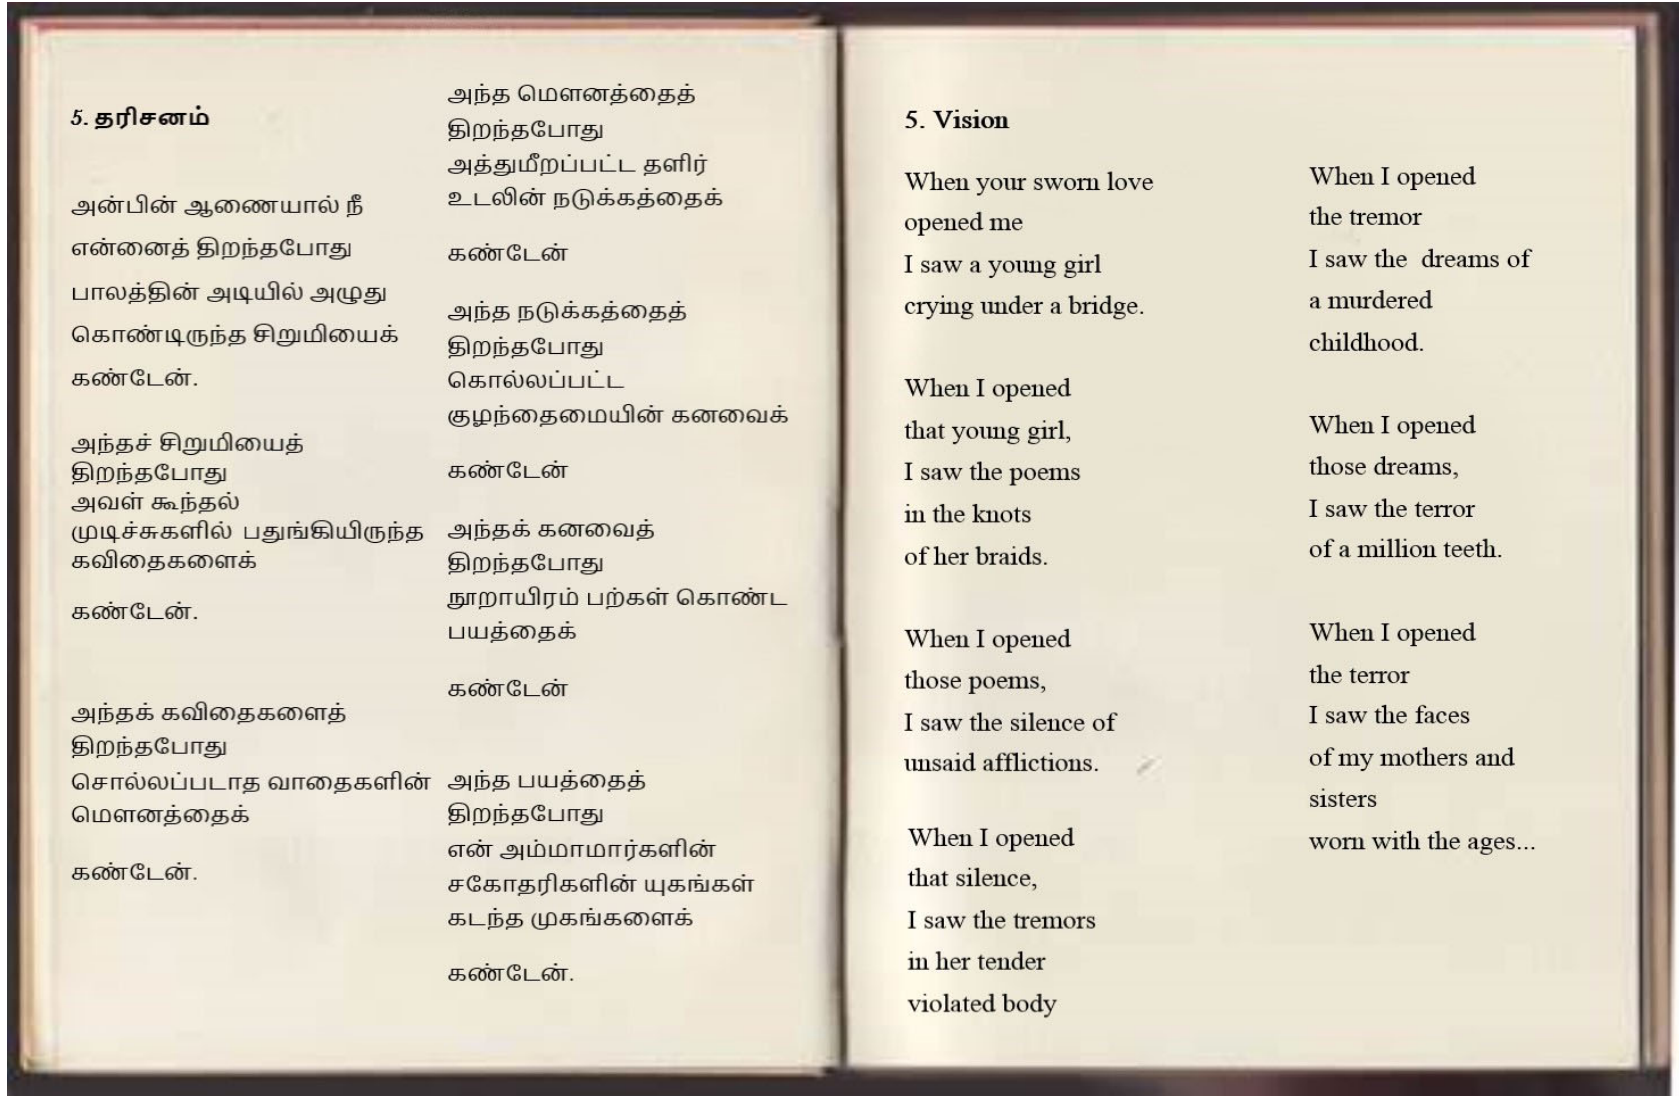 5. தரிசனம்
அன்பின் ஆணையால் நீ
என்னைத் திறந்தபோது
பாலத்தின் அடியில் அழுது
கொண்டிருந்த சிறுமியைக்
கண்டேன்.
அந்தச் சிறுமியைத்
திறந்தபோது
அவள் கூந்தல்
முடிச்சுகளில் பதுங்கியிருந்த
கவிதைகளைக்
கண்டேன்.
அந்தக் கவிதைகளைத்
திறந்தபோது
சொல்லப்படாத வாதைகளின்
மௌனத்தைக்
கண்டேன்.
அந்த மௌனத்தைத்
திறந்தபோது
அத்துமீறப்பட்ட தளிர்
உடலின் நடுக்கத்தைக்
கண்டேன்
அந்த நடுக்கத்தைத்
திறந்தபோது
கொல்லப்பட்ட
குழந்தைமையின் கனவைக்
கண்டேன்
அந்தக் கனவைத்
திறந்தபோது
நூறாயிரம் பற்கள் கொண்ட
பயத்தைக்
கண்டேன்
அந்த பயத்தைத்
திறந்தபோது
என் அம்மாமார்களின்
சகோதரிகளின் யுகங்கள்
கடந்த முகங்களைக்
கண்டேன்.
5. Vision
When your sworn love
opened me
I saw a young girl
crying under a bridge.
When I opened
that young girl,
I saw the poems
in the knots
of her braids.
When I opened
those poems,
I saw the silence of
unsaid afflictions.
When I opened
that silence,
I saw the tremors
in her tender
violated body
When I opened
the tremor
I saw the dreams of
a murdered
childhood.
When I opened
those dreams,
I saw the terror
of a million teeth.
When I opened
the terror
I saw the faces
of my mothers and
sisters
worn with the ages...